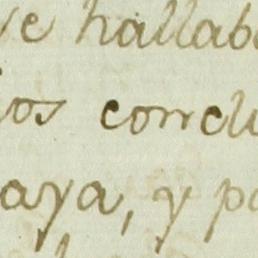 ve hallab
ios conclu
aya, y po